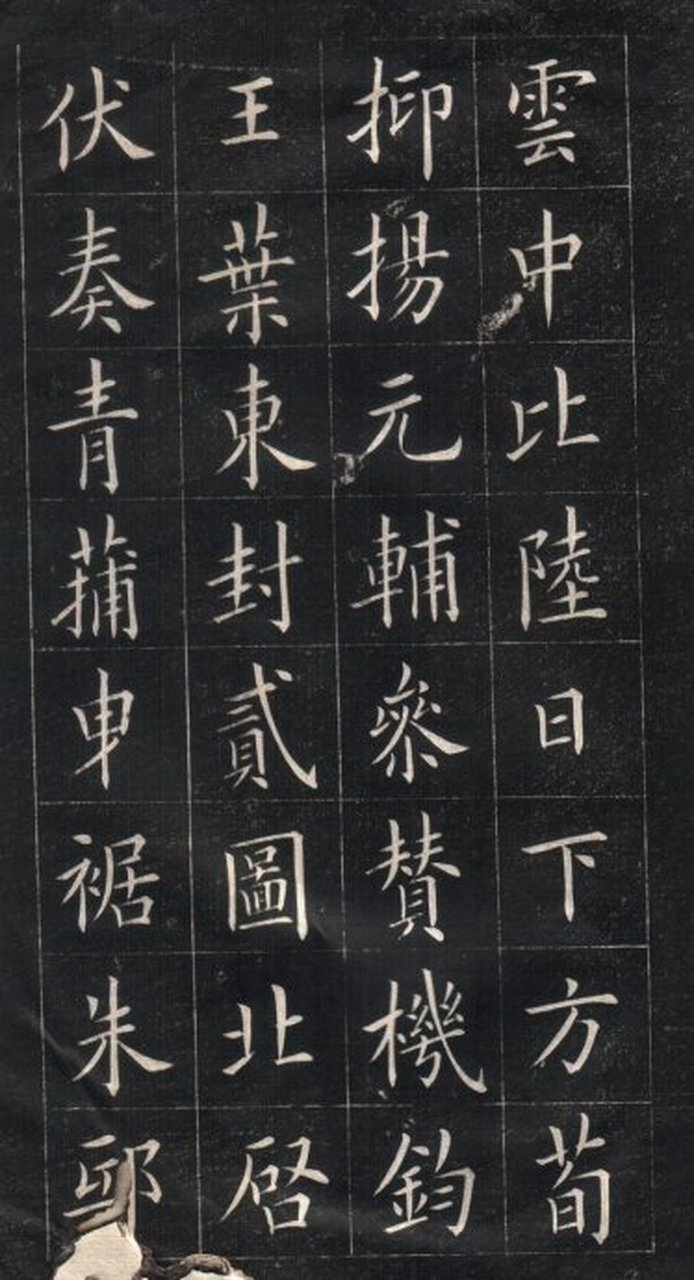 雲中比陸日下方荀
抑揚元輔參賛機鈞
王葉東封貳圖北啓
伏奏青蒱曳裾朱邸